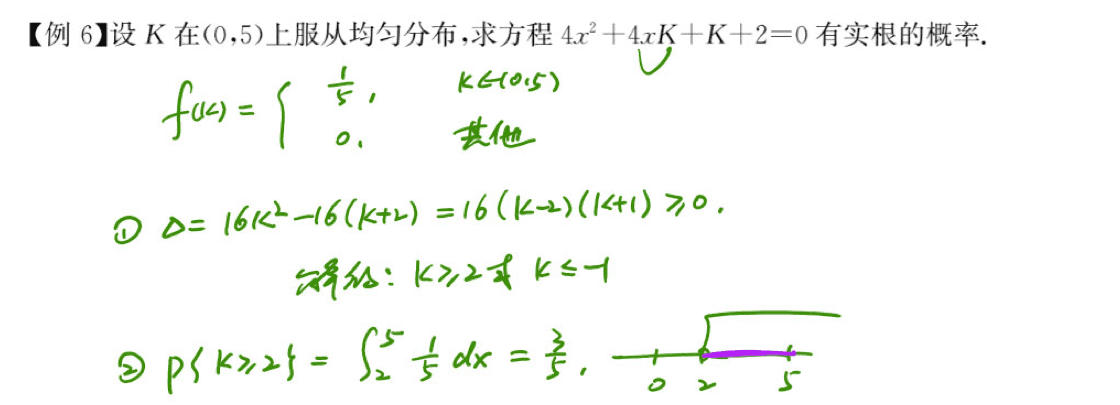 【例 6】设 K 在(0,5)上服从均匀分布,求方程 4x²+4xK+K+2=0 有实根的概率.
f(k) = { 1/5, K∈(0,5)
0, 其他
① Δ= 16K²-16(K+2) =16(K-2)(K+1) ≥0.
解得: K≥2 或 K≤-1
② P{K≥2} = ∫₂⁵ 1/5 dx = 3/5. 0 2 5